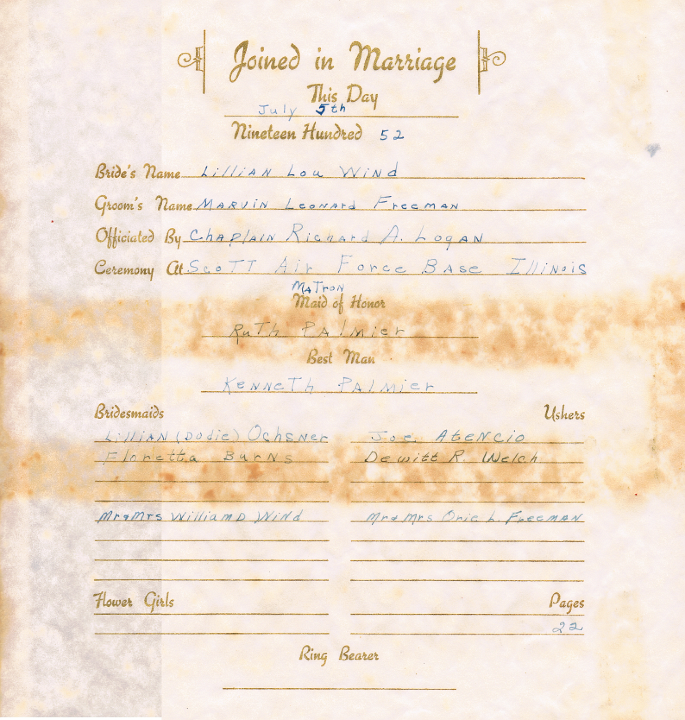 Joined in Marriage
This Day
July 5th
Nineteen Hundred 52
Bride's Name Lillian Lou Wind
Groom's Name Marvin Leonard Freeman
Officiated By Chaplain Richard A. Logan
Ceremony At Scott Air Force Base Illinois
Matron
Maid of Honor
Ruth Palmier
Best Man
Kenneth Palmier
Bridesmaids Ushers
Lillian (Dodie) Ochsner Joe Atencio
Floretta Burns Dewitt R. Welch
Mr & Mrs William D Wind Mr & Mrs Orie L. Freeman
Flower Girls Pages
22
Ring Bearer